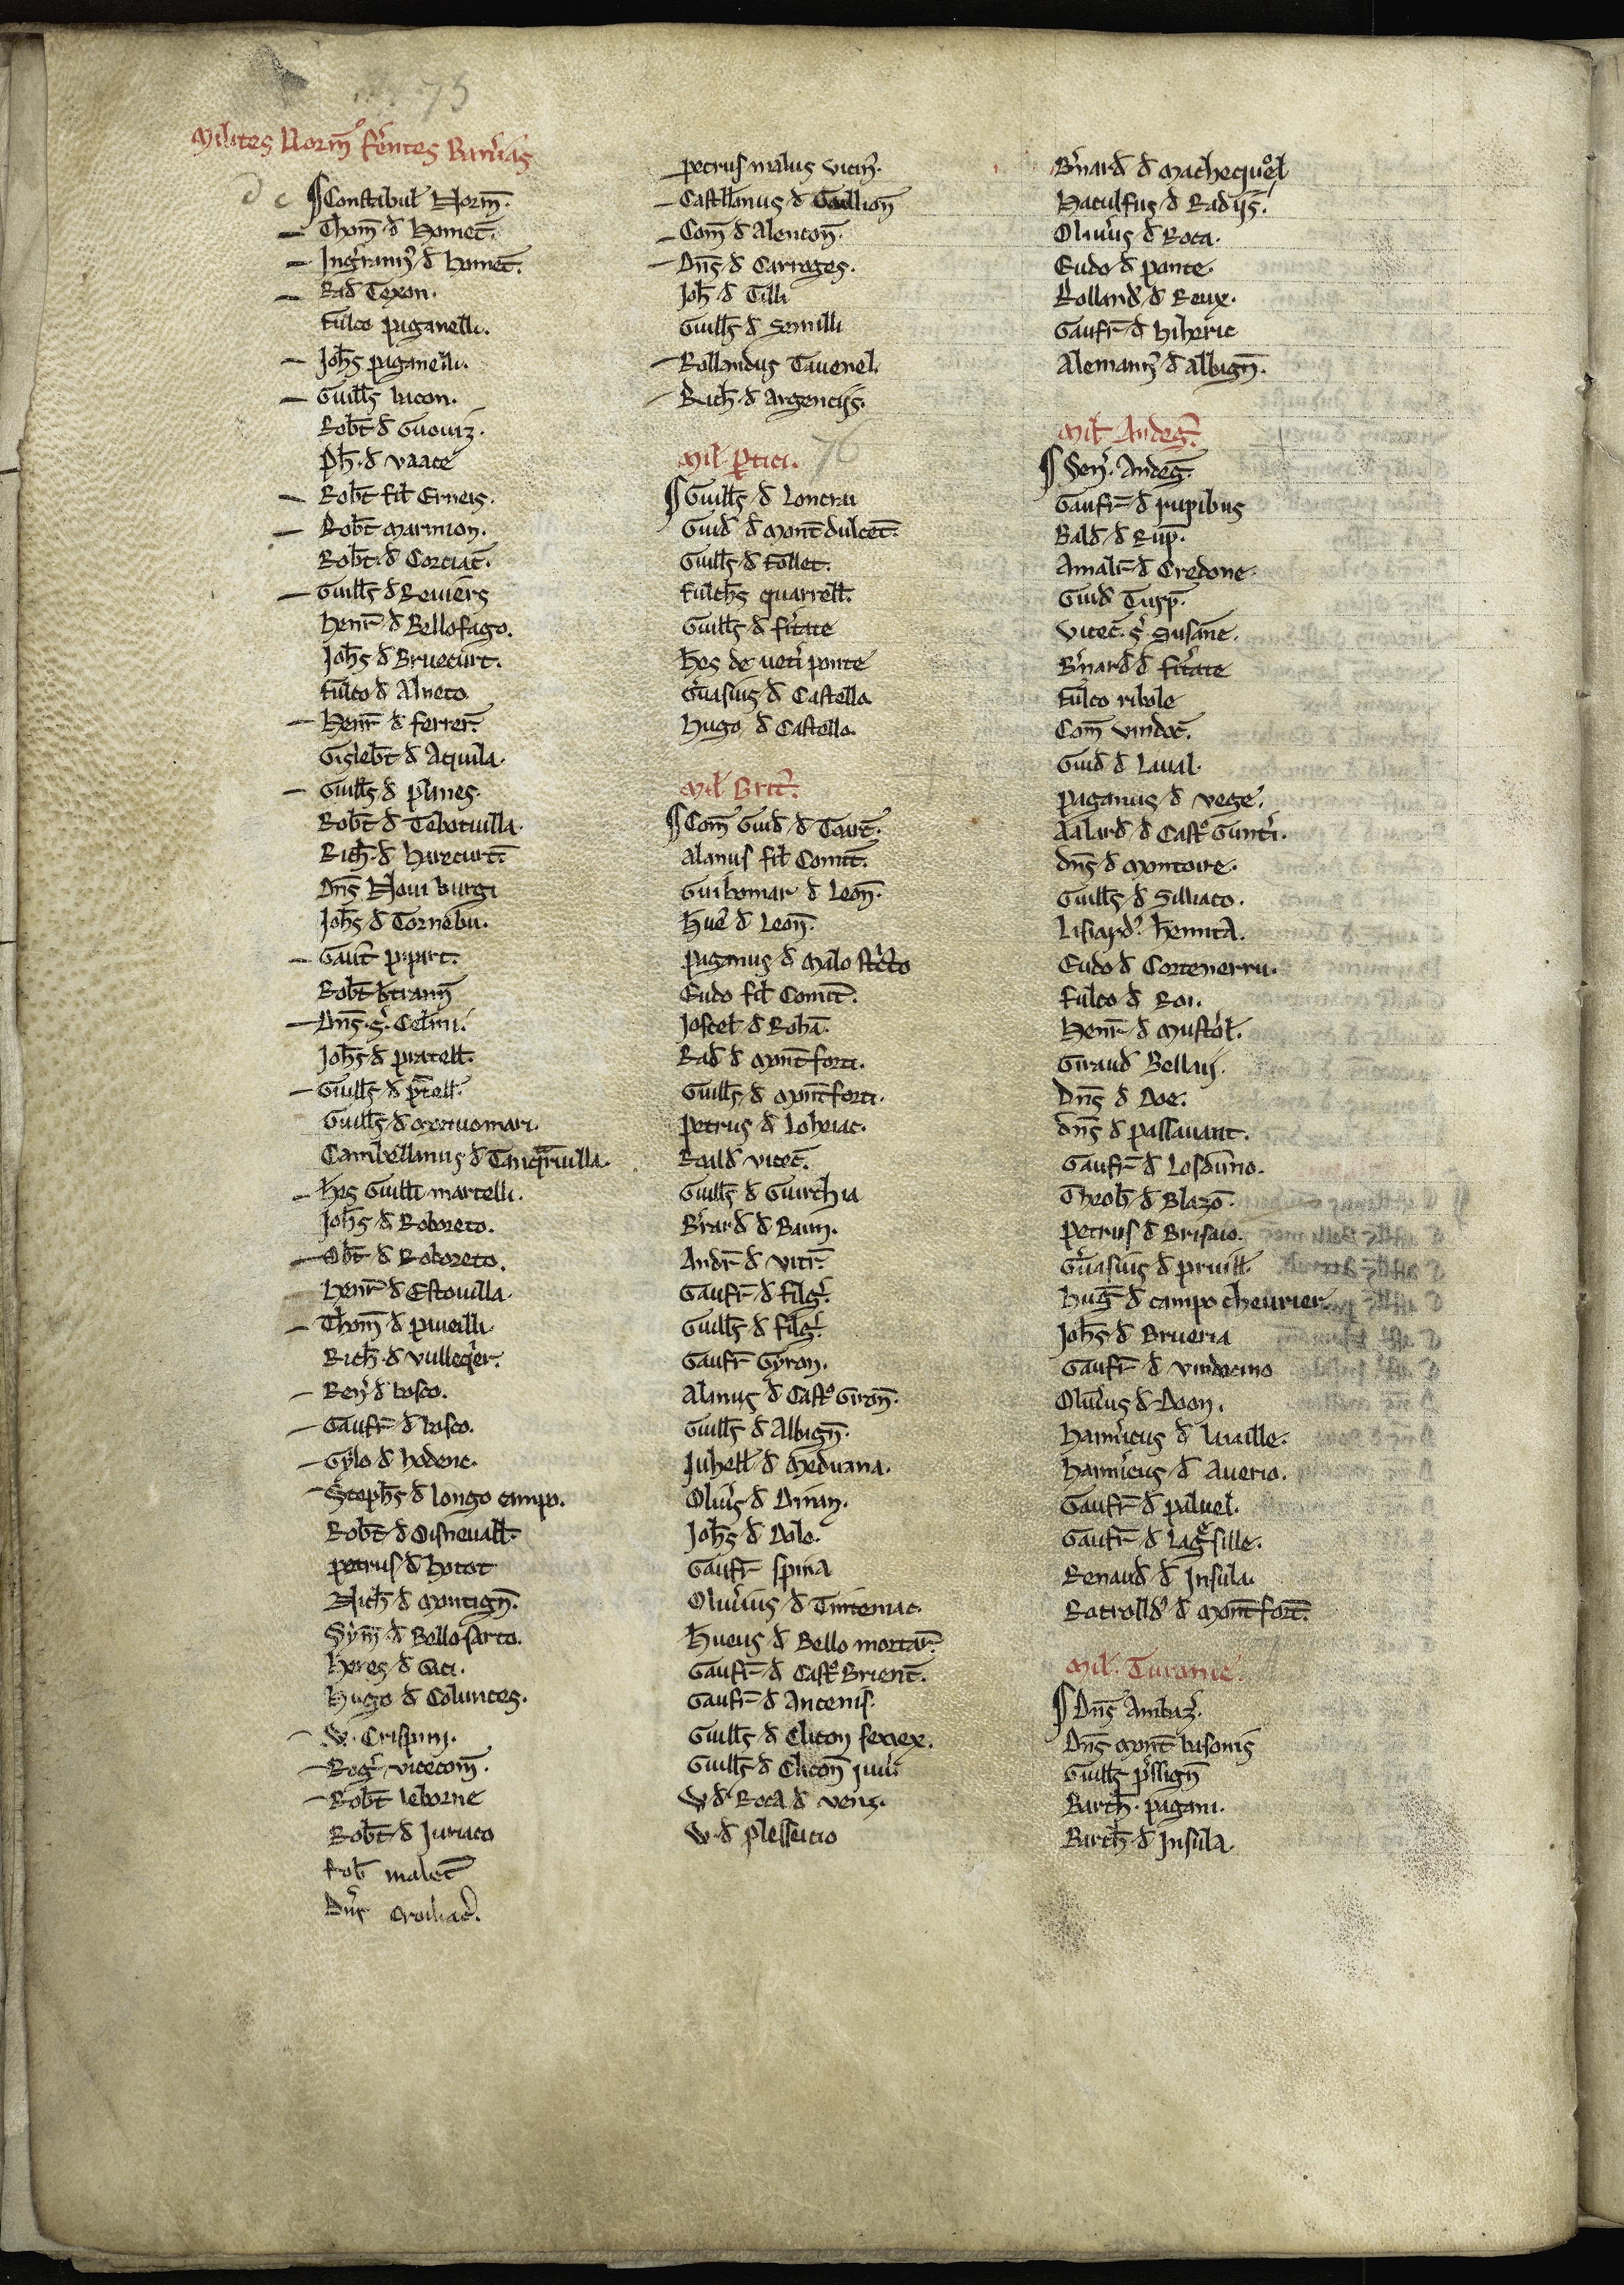 75
Milites Norm̄ fer̄entes Baner̄ias
Constabul̄ Norm̄.
Thom̄ đ Homet̄.
Ing̾rann9 đ homet̄.
Rad̄ Texon.
Fulco paganelli.
Joh̄s paganelli.
Guill̄s bacon.
Rob̄t đ Guouiz.
Ph̄. đ vaace
Rob̄t fil̄ Erneis.
Rob̄t marmion.
Rob̄t. đ Corciac̄.
Guill̄s đ Reuiers
Henr̄ đ Bellofago.
Joh̄s đ Bruecurt.
Fulco đ Alneto
Henr̄ đ ferrer̄.
Gisleb̄t đ Aquila.
Guill̄s đ planes.
Rob̄t đ Tebotuilla.
Rich̄. đ harecurt̄.
Dn̄s Noui burgi
Joh̄s đ Tornebu.
Gaut̄ pipart.
Rob̄t b̾tram̄
Dn̄s. s̾. Celini.
Joh̄s đ pratell̄.
Guill̄s đ p̾tell̄.
Guill̄s đ mortuomari.
Cambellanus đ Tanq̾ruilla.
h̄es Guill̄i martelli.
Joh̄s đ Roboreto.
Ob̄t đ Roboreto.
Henr̄ đ Estouilla.
Thom̄ đ pauelli.
Rich̄. đ vulleq̾er.
Ren̾ đ bosco.
Gaufr̄ đ bosco.
Gylo đ hodenc.
Steph̄s đ longo campo.
Rob̄t đ Oisneuall̄.
petrus đ hotot
Rich̄ đ montign̄.
Sym̄ đ Bello sarto.
heres đ Gaci.
Hugo đ Colunces.
W. Crispini.
Rog̾ vicecom̄.
Rob̄t leborne
Rob̄t đ Juriaco
Rob̄ malet̄
Dn̄s

petrus malus vicin̾.
Castell̄anus đ Gaillion̄
Com̄ đ Alencon̄.
Dn̄s đ Carroges.
Joh̄ đ Tilli
Guill̄s đ Semilli
Rollandus Tauenel.
Rich̄ đ Argenciis.
Mil̄. p̱tici. 76
Guill̄s đ Loncru
Guid̄ đ Mont̄dulcet̄.
Guill̄s đ Follet.
Fulch̄s quarrell̄.
Guill̄s đ fir̾tate
h̄es de uet̾i ponte
G̾uasius đ Castello
Hugo đ Castello.
Mil̄ Brit̄.
Com̄ Guid̄ đ Toart̄.
Alanus fil̄ Comit̄.
Guihomar đ Leon̄.
hue đ Leon̄.
paganus đ Malo st̾cto
Eudo fil̄ Comit̄.
Joscel̄ đ Rohā.
Rad̄ đ mont̄forti.
Guill̄s đ mont̄forti.
petrus đ Loheiac.
Roald̄ vicec̄.
Guill̄s đ Guirchia
B̾rard̄ đ Bain.
Andr̄ đ vitr̄.
Gaufr̄ đ filg̾.
Guill̄s đ filg̾.
Gaufr̄ Gyron.
Alanus đ Castro Giron̄.
Guill̄s đ Albign̄.
Juhell̄ đ Meduana.
Oliu̾s đ Dinan.
Joh̄s đ Dole.
Gaufr̄ spina
Oliu̾ius đ Tinteniac.
hueus đ Bello mortar̄.
Gaufr̄ đ Castro Brient̄.
Gaufr̄ đ Ancenis.
Guill̄s đ Clicon senex.
Guill̄s đ Clicon̄ juu̾.
W đ Roca đ
W. đ plesseicio

B̾nard̄ đ Machequol
Haculfus đ Radiis.
Oliu̾us đ Roca.
Eudo đ ponte.
Rolland̾ đ Reux.
Gaufr̄ đ hiheric
Alemann9 đ Albign̄.
Mil̄ Andeg̾.
Sen̾. Andeg̾.
Gaufr̄ đ rupibus
Bald̄ đ Rup̄.
Amalr̄ đ Credone.
Guid̄ Tusp̄.
Vicec̄. s̾. Susane.
B̾nard̄ đ fir̾tate
Fulco ribole
Com̄ vindoc̄.
Guid̄ đ Laual.
paganus đ vege.
Aalard̄ đ Castro Gunt̾i.
dn̄s đ Montoire.
Guill̄s đ Silliaco.
Lisiard̾. h̾mita.
Eudo đ Cortenerru.
Fulco đ Roi.
Henr̄ đ Must̾ol̄.
Giraud̄ Bellaij.
Dn̄s đ Doe.
dn̄s đ passauant.
Gaufr̄ đ Losduno.
Theob̄ đ Blazō.
petrus đ Brisaio.
G̾uasius đ pruill̄.
Hug̾ đ campo cheurier.
Joh̄s đ Brueria
Gaufr̄ đ vindocino
Oliu̾us đ Doon.
Ham̾icus đ luaille.
Ham̾icus đ Auerio.
Gaufr̄ đ paluel.
Gaufr̄ đ Lagresille.
Renaud̄ đ Insula.
Rotrolld̾ đ Mont̄fort̄.
Mil̄. Turonie.
Dn̄s Ambaz̾.
Dn̄s Mont̄ basonis
Guill̄s p̾ssign̄
Barth̄. pagani.
Barth̄. đ Insula.